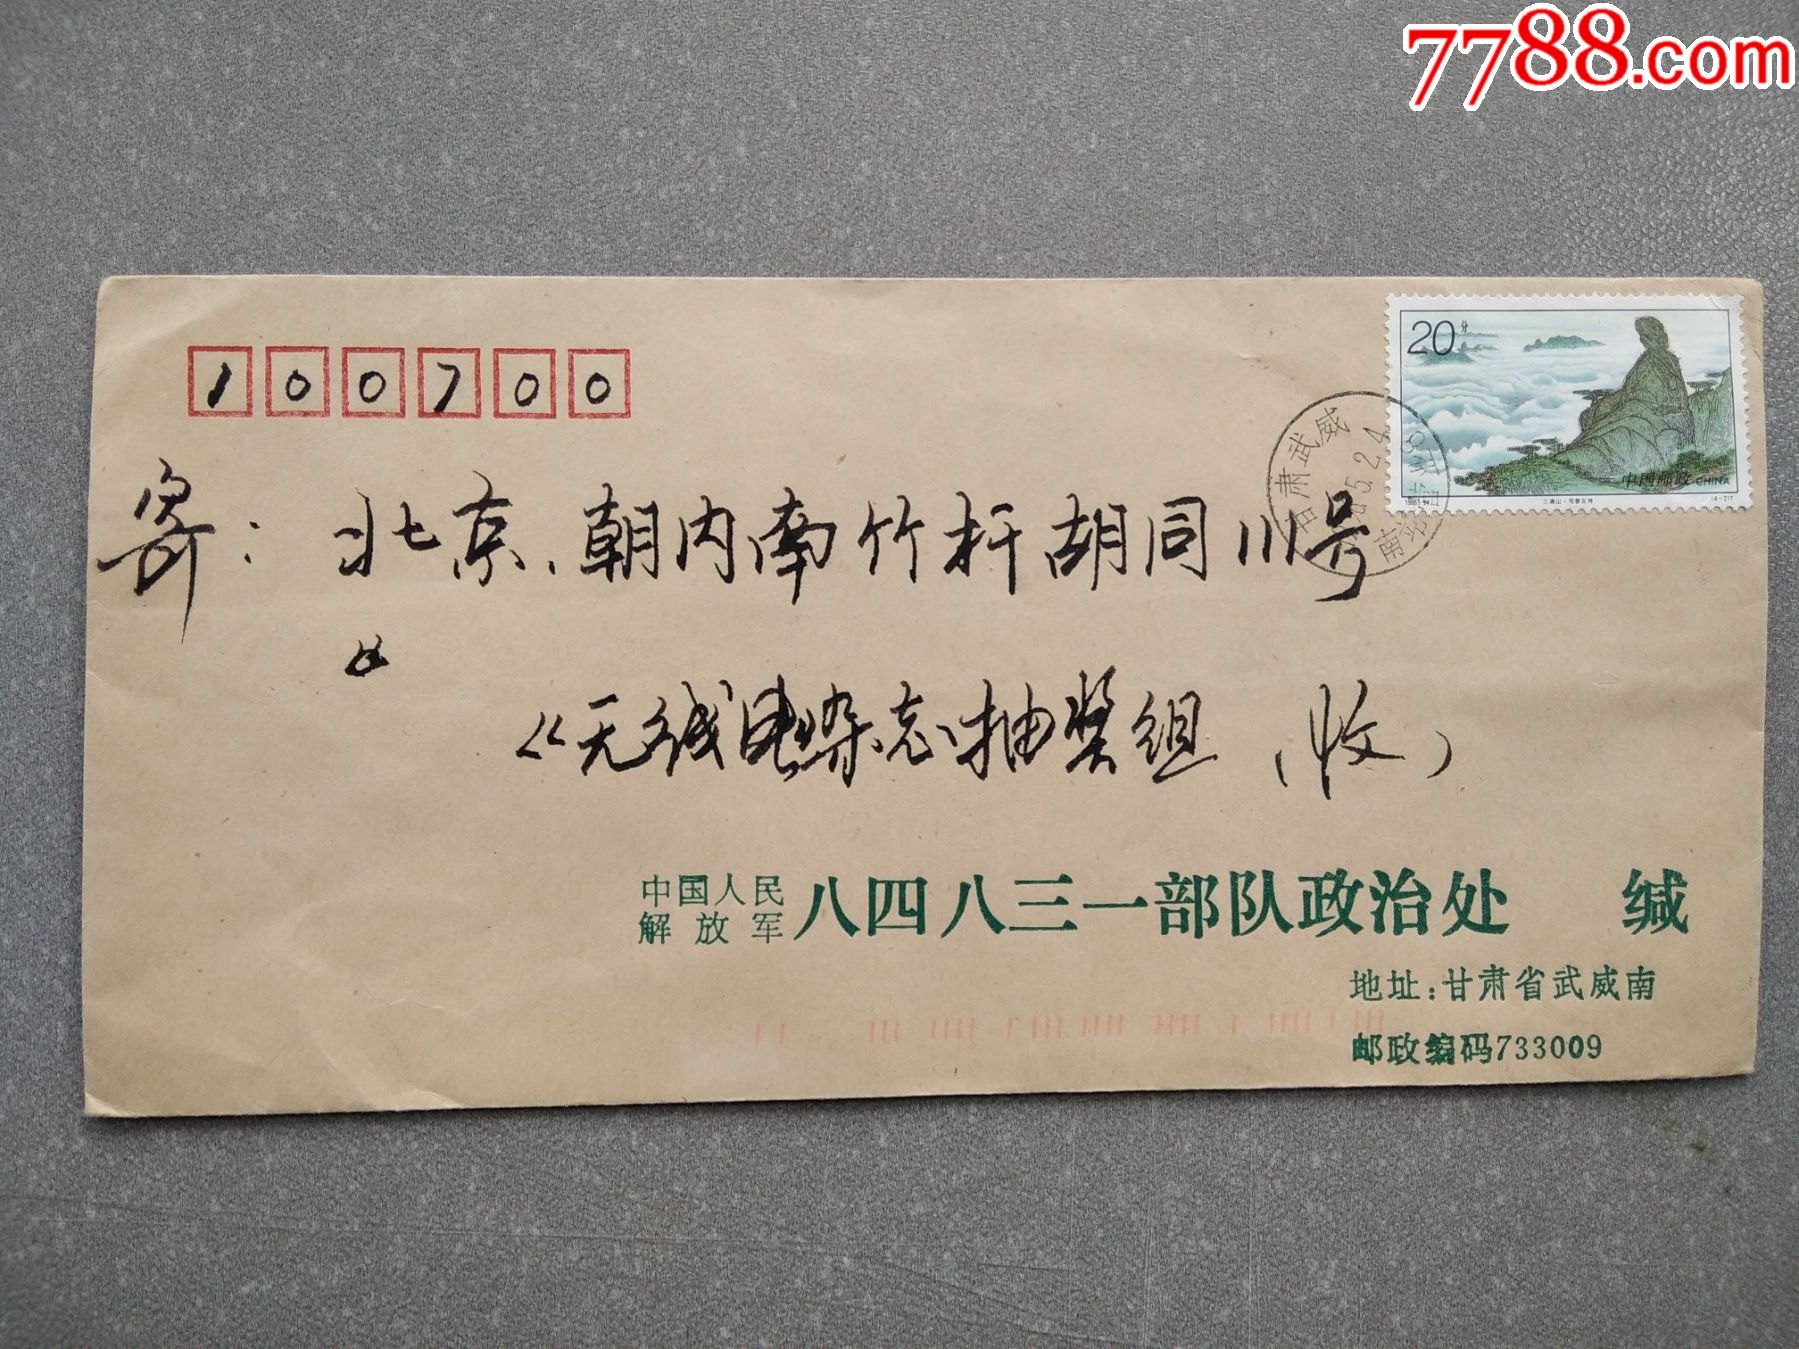 7788.com
100700
20分
三清山·司春女神
1995-24
(4-2)T
中国邮政 CHINA
甘肃武威
95.2.4
南
寄：北京、朝内南竹杆胡同111号
《无线电杂志抽奖组（收）
中国人民解放军八四八三一部队政治处 缄
地址：甘肃省武威南
邮政编码733009